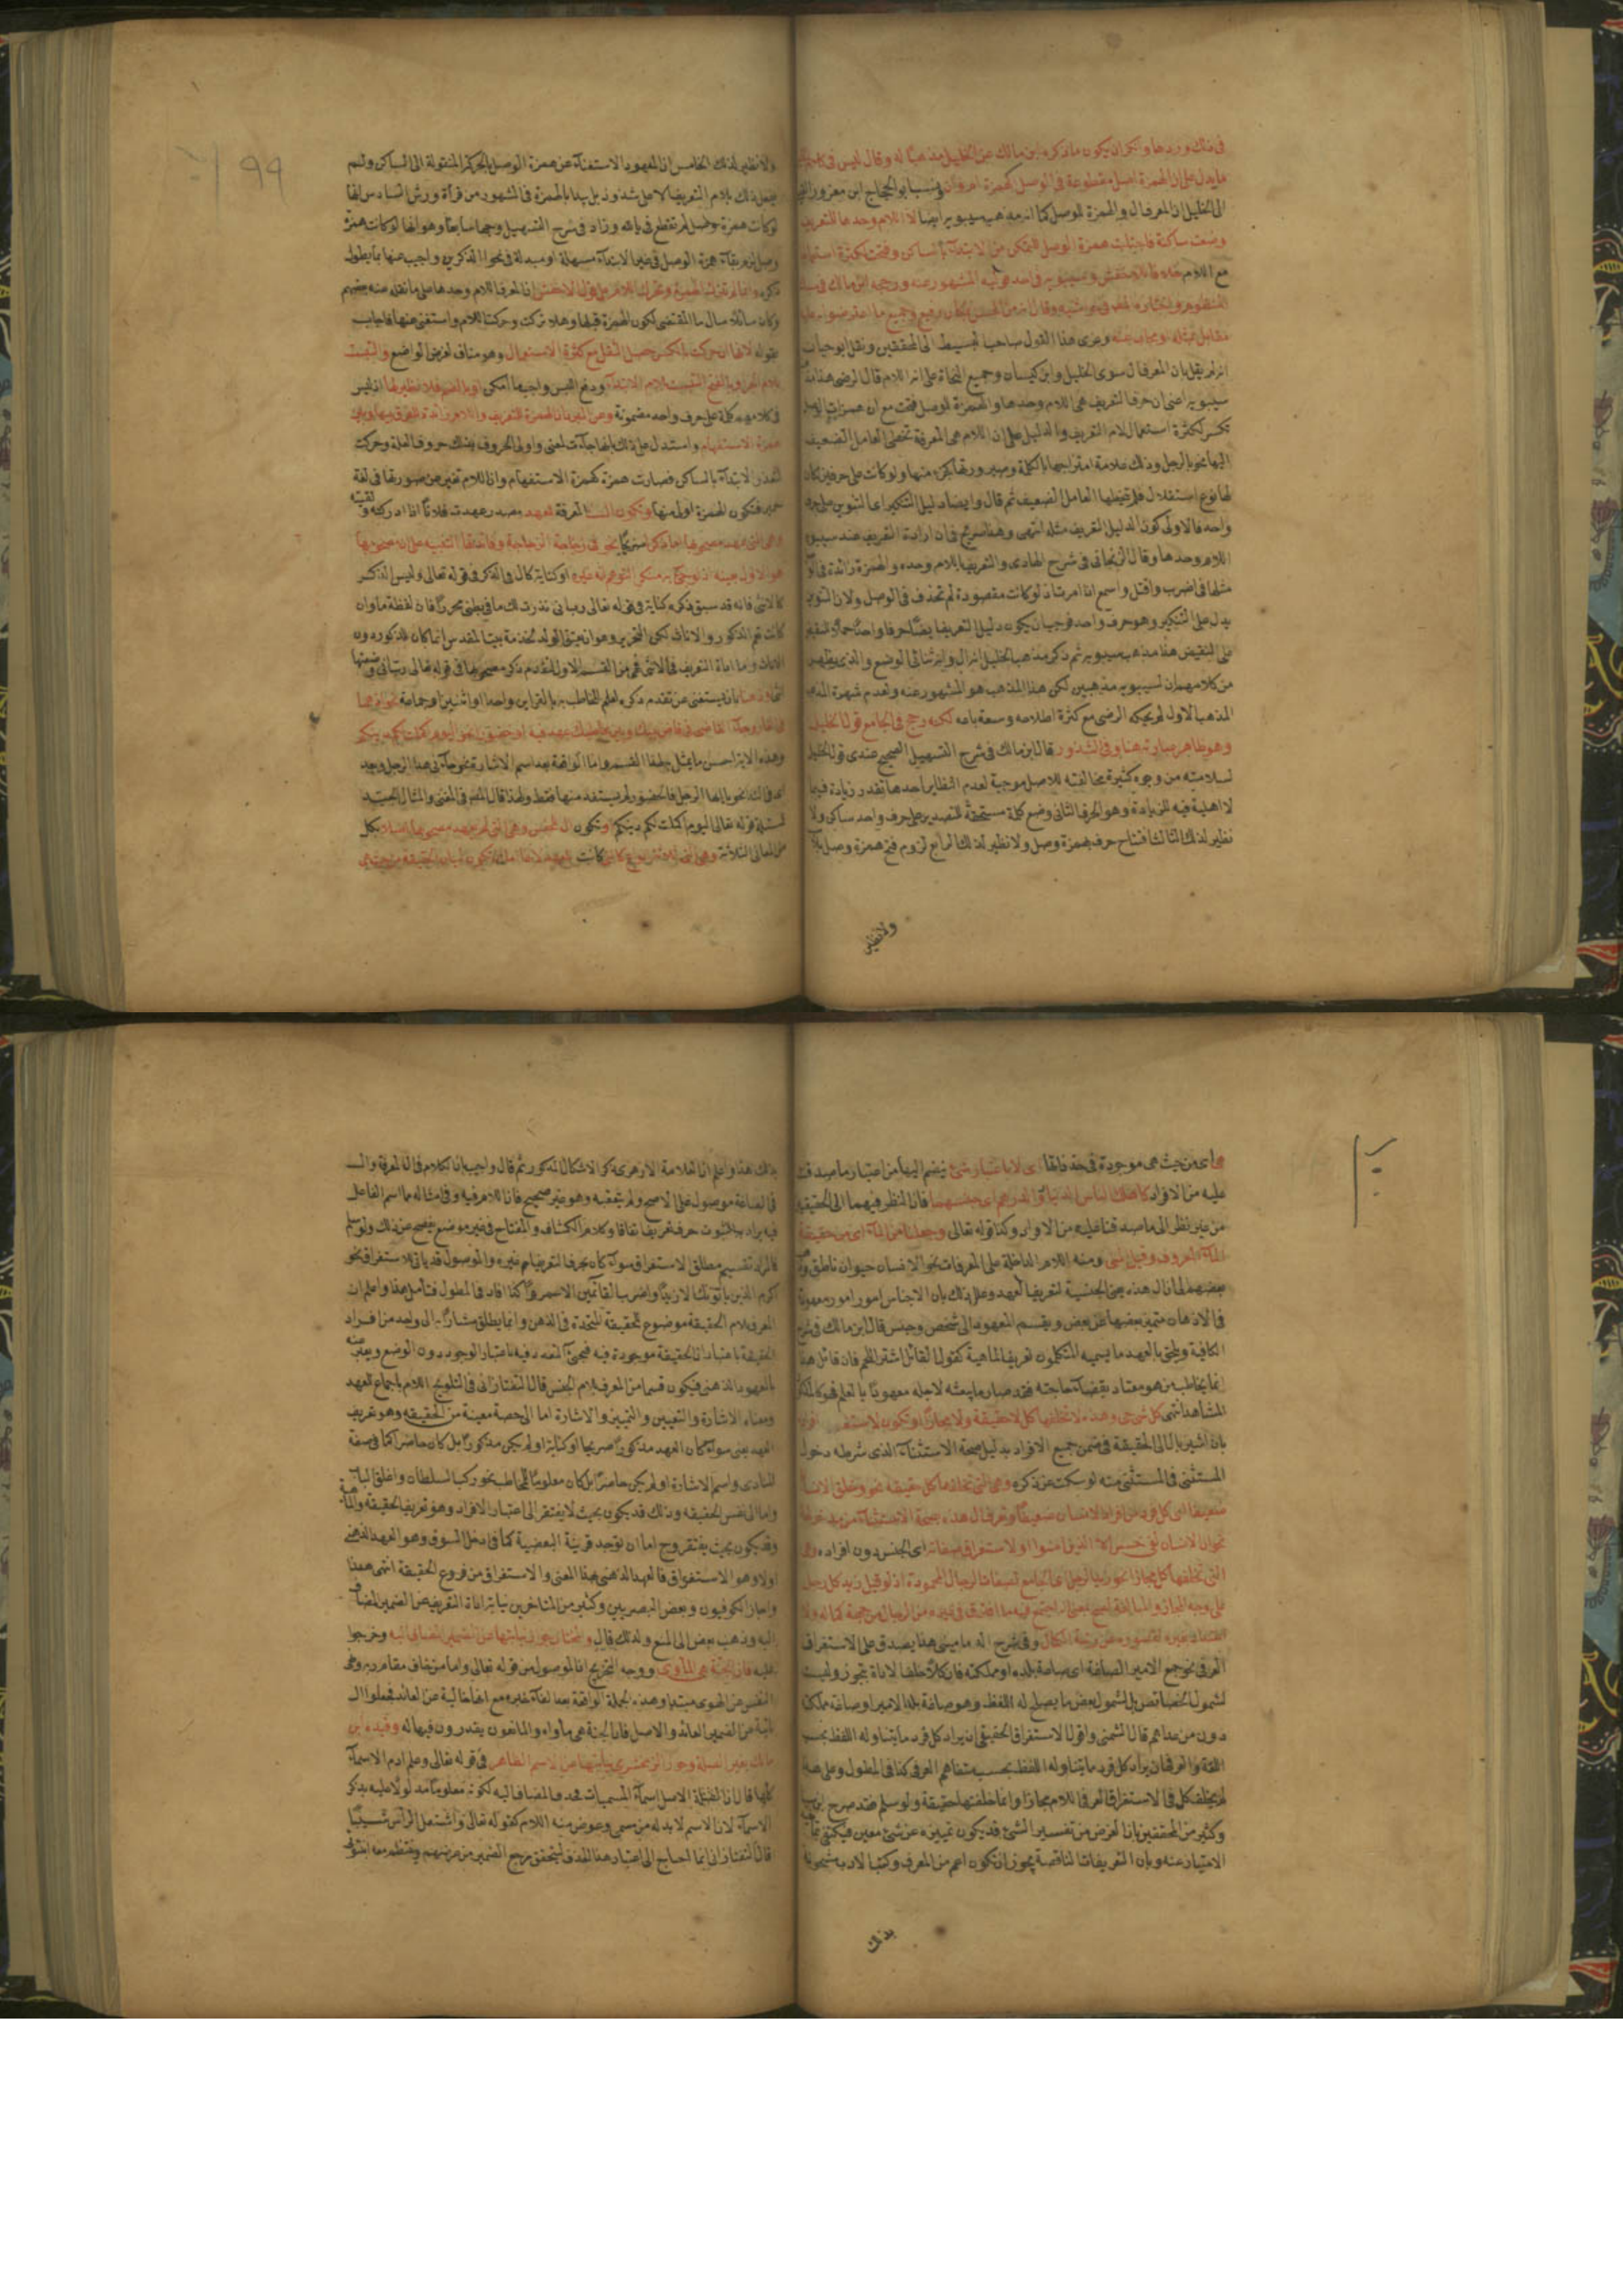 في ذلك وردها وانكر ان يكون ما ذكره ابن مالك عن الخليل مذهبا له وقال ليس في كلام
ما يدل على ان الهمزة اصل مقطوعة في الوصل كهمزة ام وان ونسب ابو الحجاج ابن معزوز
الى الخليل ان المعرف ال والهمزة للوصل كما انه مذهب سيبويه ايضا لا اللام وحدها للتعريف
وضعت ساكنة فاجتلبت همزة الوصل للتمكن من الابتداء بالساكن وفتحت لكثرة استعمال
مع اللام وسيبويه في احد قوليه المشهور عنه ورجحه ابن مالك في
مقابل وعزى هذا القول صاحب البسيط الى المحققين ونقل ابو حيان
انه لم يقل بان المعرف ال سوى الخليل وابن كيسان وجميع النحاة على انه اللام قال الرضى هذا مذهب
سيبويه اعنى ان حرف التعريف هي اللام وحدها والهمزة للوصل فتحت مع ان همزات الوصل
تكسر لكثرة استعمال لام التعريف والدليل على ان اللام هي المعرفة تخطى العامل الضعيف
اليها نحو بالرجل وذلك علامة امتزاجها بالكلمة وصيرورتها كجزء منها ولو كانت على حرفين لكان
لها نوع استقلال فلم يتخطها العامل الضعيف ثم قال وايضا دليل التنكير اى التنوين على حرف
واحد فالاولى كون الدليل التعريف مثله انتهى وهذا صريح في ان اداة التعريف عند سيبويه
اللام وحدها وقال الزنجاني في شرح الهادى والتعريف باللام وحده والهمزة زائدة في اوله
مثلها في اضرب واقتل واسمع اذا امرت اذ لو كانت مقصودة لم تحذف في الوصل ولان التنوين
يدل على التنكير وهو حرف واحد فوجب ان يكون دليل التعريف ايضا حرفا واحدا حملا للنقيض
على النقيض هذا مذهب سيبويه ثم ذكر مذهب الخليل انه ال وانه ثنائى الوضع والذى يظهر
من كلامهم ان لسيبويه مذهبين لكن هذا المذهب هو المشهور عنه ولعدم شهرة
المذهب الاول لم يحكه الرضى مع كثرة اطلاعه وسعة باعه لكنه رجح في الجامع قول الخليل
وهو ظاهر عبارته هنا وفي الشذور قال ابن مالك في شرح التسهيل الصحيح عندى قول الخليل
لسلامته من وجوه كثيرة مخالفته للاصل موجبة لعدم النظاير احدها تقدير زيادة فيما
لا اهلية فيه للزيادة وهو الحرف الثانى وضع كلمة مستحقة للتصدير على حرف واحد ساكن ولا
نظير لذلك الثالث افتتاح حرف بهمزة وصل ولا نظير لذلك الرابع لزوم فتح همزة وصل بلا
ولا نظير
99
ولا نظير لذلك الخامس ان المعهود الاستغناء عن همزة الوصل بالحركة المنقولة الى الساكن ولم
يفعل ذلك بلام التعريف الا على شذوذ بل يبدا بالهمزة في المشهور من قرآءة ورش السادس انها
لو كانت همزة وصل لم تقطع في يالله وزاد في شرح التسهيل وجها سابعا وهو انها لو كانت همزة
وصل لزم بقاء همزة الوصل في غير الابتداء مسهلة او مبدلة في نحو آلذكرين واجيب عنها بما يطول
ذكره
وكان سائلا سال ما المقتضى لكون الهمزة قبلها وهلا تركت وحركت اللام واستغنى عنها فاجاب
بقوله لانها ان حركت بالكسر حصل الثقل مع كثرة الاستعمال وهو مناف لغرض الواضع والتبست
بلام الجر او بالفتح التبست بلام الابتداء ودفع اللبس واجب ما امكن او بالضم فلا نظير لها اذ ليس
في كلامهم كلمة على حرف واحد مضمومة وعن المبرد ان الهمزة للتعريف واللام زائدة للفرق بينها وبين
همزة الاستفهام واستدل على ذلك بانها جاءت لمعنى واولى الحروف بذلك حروف العلة وحركت
لتعذر الابتداء بالساكن فصارت همزة كهمزة الاستفهام وان اللام تغير عن صورتها في لغة
حمير فتكون الهمزة اولى منها وتكون ال المعرفة للعهد مصدر عهدت فلانا اذا ادركته ولقيته
نحو في زجاجة الزجاجة
او كناية كال في الذكر في قوله تعالى وليس الذكر
كالانثى فانه قد سبق ذكره كناية في قوله تعالى رب انى نذرت لك ما في بطنى محررا فان لفظة ما وان
كانت تعم الذكور والاناث لكن التحرير وهو ان يعتق الولد لخدمة بيت المقدس انما كان للذكور دون
الاناث واما اداة التعريف في الانثى فمن القسم الاول لتقدم ذكر مصحوبها في قوله تعالى رب انى وضعتها
انثى بان يستغنى عن تقدم ذكره لعلم المخاطب به بالقراين واحدا او اثنين او جماعة
وهذه الاية احسن ما يمثل به لهذا القسم واما الواقعة بعد اسم الاشارة نحو جاءنى هذا الرجل وبعد
اى في النداء نحو يا ايها الرجل فالحضور لم يستفد منها فقط ولهذا قال المص في المغنى والمثال الجيد
للمسئلة قوله تعالى اليوم اكملت لكم دينكم او تكون ال للجنس وهى التى لم يعهد مصحوبها
هى اى من حيث هى موجودة في حد ذاتها اى لا باعتبار شئ ينضم اليها من اعتبار ما صدقت
عليه من الافراد كاهلك الناس الدينار والدرهم اى جنسهما فان النظر فيهما الى الحقيقة
من غير نظر الى ما صدقتا عليه من الافراد وكذا قوله تعالى وجعلنا من الماء اى من حقيقة
الماء المعروف وقيل المنى ومنه اللام الداخلة على المعرفات نحو الانسان حيوان ناطق
بعضهم الى ان ال هذه يعنى الجنسية لتعريف العهد وعلل ذلك بان الاجناس امور معهودة
في الاذهان متميز بعضها عن بعض ويقسم المعهود الى شخص وجنس قال ابن مالك في شرح
الكافية ويلحق بالعهد ما يسميه المتكلمون تعريف الماهية كقول القائل اشتر اللحم فان قائل هذا
انما يخاطب من هو معتاد بقضاء حاجته فقد صار ما يبعثه لاجله معهودا بالعلم فهو كالمذكور
المشاهد انتهى
بان اشير بال الى الحقيقة في ضمن جميع الافراد بدليل صحة الاستثناء الذى شرطه دخول
المستثنى في المستثنى منه لو سكت عن ذكره وهى التى تخلفها كل حقيقة نحو وخلق الانسان
ضعيفا اى كل فرد من افراد الانسان ضعيفا وتعرف ال هذه بصحة الاستثناء من مدخولها
نحو ان الانسان لفى خسر الا الذين امنوا او لاستغراق صفاته اى الجنس دون افراده وهى
التى تخلفها كل مجازا نحو زيد الرجل اى الجامع لصفات الرجال المحمودة اذ لو قيل زيد كل رجل
على وجه المجاز والمبالغة لصح بمعنى انه اجتمع فيه ما افترق في غيره من الرجال
العرفى نحو جمع الامير الصاغة اى صاغة بلده او مملكته
لشمول الخصائص بل لشمول بعض ما يصلح له اللفظ وهو صاغة بلد الامير او صاغة مملكته
دون من عداهم قال الشمنى واقول الاستغراق الحقيقى ان يراد كل فرد مما يتناوله اللفظ بحسب
اللغة والعرفى ان يراد كل فرد مما يتناوله اللفظ بحسب متفاهم العرف كذا في المطول
لم يخلف كل في الاستغراق العرفى اللام مجازا وانما خلفتها حقيقة ولو سلم فقد صرح
وكثير من المحققين بان الغرض من تفسير الشئ قد يكون تمييزه عن شئ معين فيكتفى بما
الامتياز عنه وبان التعريفات الناقصة يجوز ان تكون اعم من المعرف وكتب الادب مشحونة
بذلك
بذلك هذا واعلم ان العلامة الازهرى ذكر الاشكال المذكور ثم قال واجيب بان الكلام في ال المعرفة وال
في الصاغة موصول على الاصح ولم يتعقبه وهو غير صحيح فان اللام فيه وفي مثاله مما اسم الفاعل
فيه يراد به الثبوت حرف تعريف اتفاقا وكلام الكشاف والمفتاح في غير موضع يفصح عن ذلك ولو سلم
فالمراد تقسيم مطلق الاستغراق سواء كان بحرف التعريف او غيره والموصول قد ياتى للاستغراق نحو
اكرم الذين ياتونك الا زيدا واضرب القائمين الا عمروا كذا افاد في المطول فتامل هذا واعلم ان
المعرف بلام الحقيقة موضوع للحقيقة المتحدة في الذهن وانما يطلق مشارا به الى واحد من افراد
الحقيقة باعتبار ان الحقيقة موجودة فيه فيجئ التعدد فيه باعتبار الوجود دون الوضع ويعبر عنه
بالمعهود الذهنى فيكون قسما من المعرف بلام الجنس قال التفتازانى في التلويح اللام باجماع للعهد
ومعناه الاشارة والتعيين والتمييز والاشارة اما الى حصة معينة من الحقيقة وهو تعريف
العهد يعنى سواء كان العهد مذكورا صريحا او كناية او لم يكن مذكورا بل كان حاضرا كما في صفة
المنادى واسم الاشارة او لم يكن حاضرا بل كان معلوما للمخاطب نحو ركب السلطان واغلق الباب
واما الى نفس الحقيقة وذلك قد يكون بحيث لا يفتقر الى اعتبار الافراد وهو تعريف الحقيقة والماهية
وقد يكون بحيث يفتقر وح اما ان توجد قرينة البعضية كما في ادخل السوق وهو العهد الذهنى
اولا وهو الاستغراق فالعهد الذهنى بهذا المعنى والاستغراق من فروع الحقيقة انتهى هذا
واجاز الكوفيون وبعض البصريين وكثير من المتاخرين نيابة اداة التعريف عن الضمير المضاف
اليه وذهب بعض الى المنع ولذلك قال والمختار جواز نيابتها عن الضمير المضاف اليه وخرجوا
عليه فان الجنة هى المأوى ووجه التخريج ان الموصول من قوله تعالى واما من خاف مقام ربه ونهى
النفس عن الهوى مبتدا وهذه الجملة الواقعة بعد الفاء خبره مع انها خالية عن العائد فجعلوا ال
نائبة عن الضمير العائد والاصل فان الجنة هى مأواه والمانعون يقدرون فيها له وقيده ابن
مالك بغير الصلة وجوز الزمخشرى نيابتها عن الاسم الظاهر في قوله تعالى وعلم ادم الاسماء
كلها قال ان الاصل اسماء المسميات فحذف المضاف اليه لكونه معلوما مدلولا عليه بذكر
الاسماء لان الاسم لا بد له من مسمى وعوض منه اللام كقوله تعالى واشتعل الرأس شيبا
قال التفتازانى انما احتاج الى اعتبار هذا الحذف ليتحقق مرجع الضمير من عرضهم وينتظم معه انبئونى